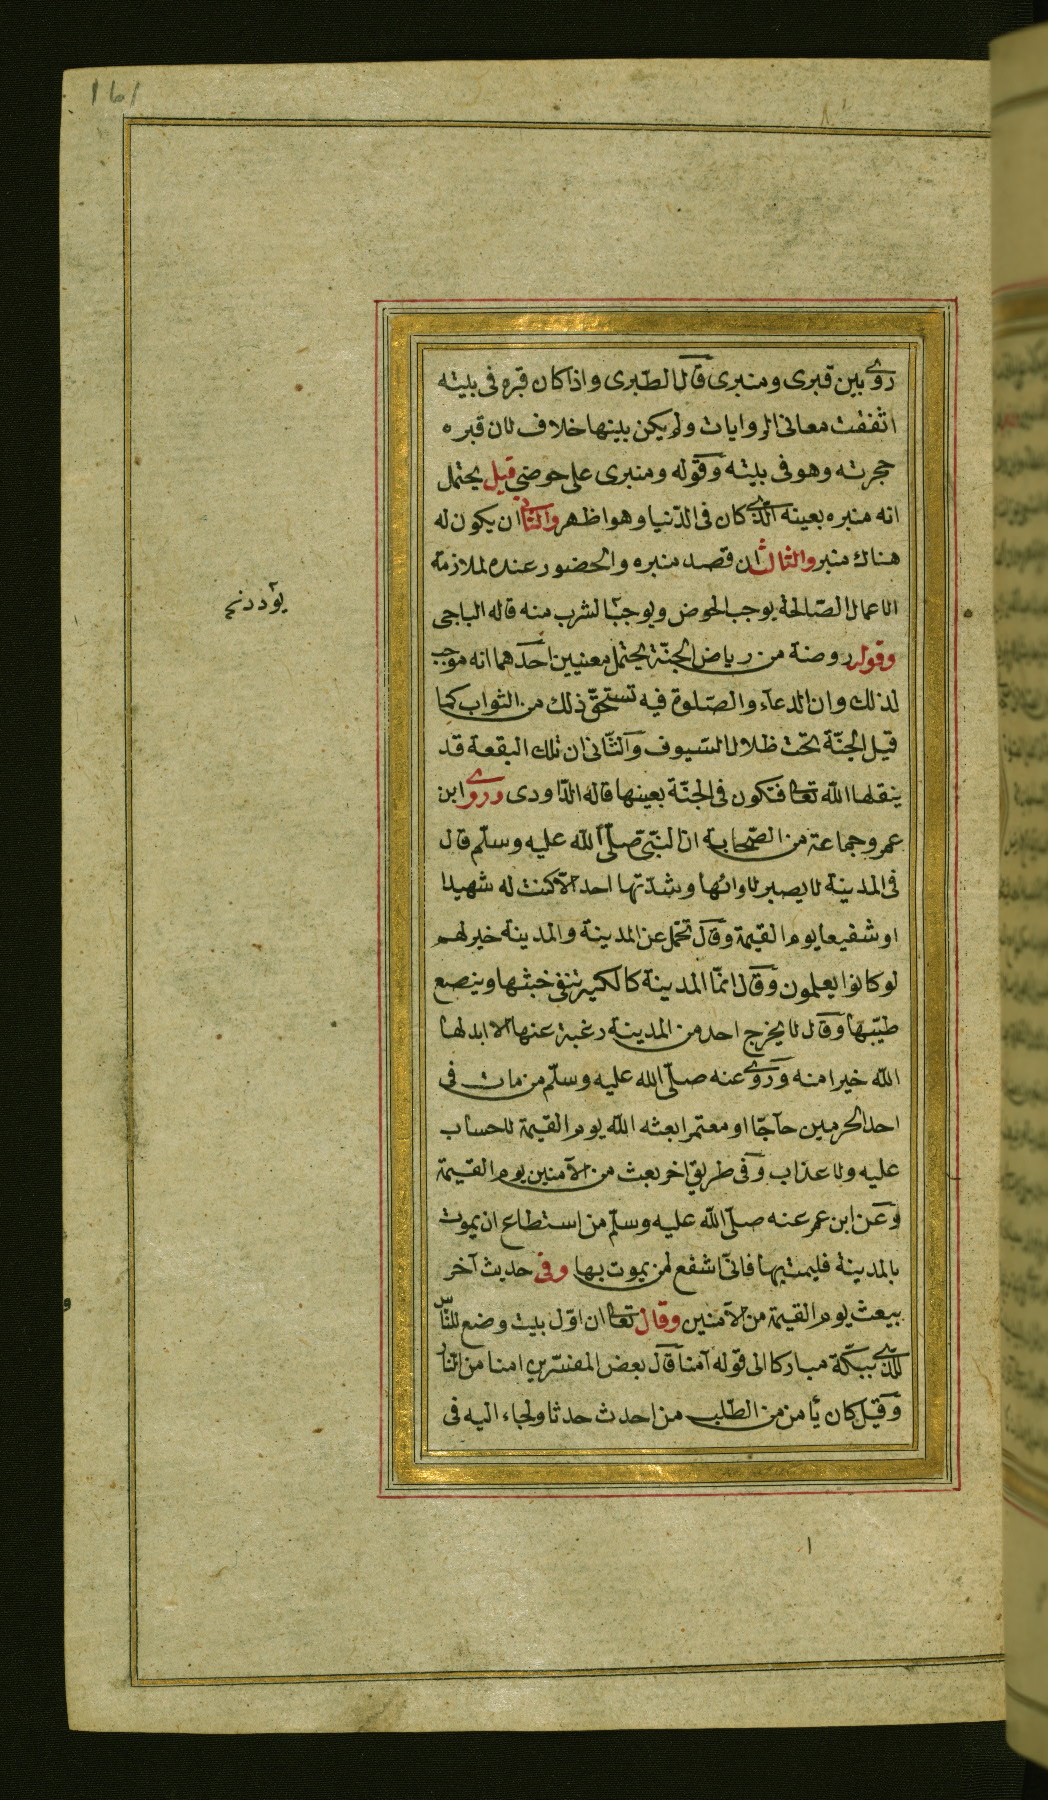 روى بين قبرى ومنبرى قال الطبرى واذا كان قبره فى بيته
اتفقت معانى الروايات ولم يكن بينها خلاف لان قبره
حجرته وهو فى بيته وقوله ومنبرى على حوضى قيل يحتمل
انه منبره بعينه الذى كان فى الدّنيا وهو اظهر والثانى ان يكون له
هناك منبر والثالث ان قصد منبره والحضور عنده لملازمة
الاعمال الصّالحة يوجب الحوض ويوجب الشرب منه قاله الباجى
وقوله روضة من رياض الجنّة يحتمل معنيين احدهما انه موجب
لذلك وان الدعاء والصّلوة فيه تستحقّ ذلك من الثواب كما
قيل الجنّة تحت ظلال السّيوف والثّانى ان تلك البقعة قد
ينقلها اللّه تعالى فتكون فى الجنّة بعينها قاله الدّاودى وروى ابن
عمر وجماعة من الصّحابة ان النّبىّ صلّى اللّه عليه وسلّم قال
فى المدينة لا يصبر لاوائها وشدّتها احد الّا كنت له شهيدا
او شفيعا يوم القيمة وقال تحمل عن المدينة والمدينة خير لهم
لو كانوا يعلمون وقال انمّا المدينة كالكير تنفى خبثها وينصع
طيّبها وقال لا يخرج احد من المدينة رغبة عنها الا ابدلها
اللّه خيرا منه وروى عنه صلّى اللّه عليه وسلّم من مات فى
احد الحرمين حآجّا او معتمرا بعثه اللّه يوم القيمة لا حساب
عليه ولا عذاب وفى طريق اخر بعث من الآمنين يوم القيمة
وعن ابن عمر عنه صلّى اللّه عليه وسلّم من استطاع ان يموت
بالمدينة فليمت بها فانّى اشفع لمن يموت بها وفى حديث آخر
يبعث يوم القيمة من الآمنين وقال تعالى ان اوّل بيت وضع للنّاس
للّذى ببكّة مباركا الى قوله آمنا قال بعض المفسّرين امنا من النّار
وقيل كان يأمن من الطّلب من احدث حدثا ولجاء اليه فى